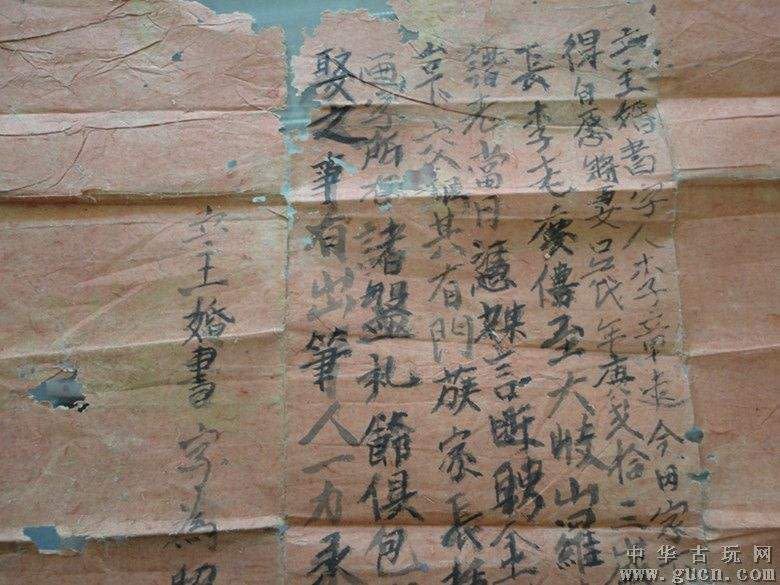 立主婚書字人李章遠今因家
得自愿將妻呂氏年庚弍拾三歲
長李老慶倩至大歧山羅
諧老當日憑媒言断聘金
其有門族家長
所有諸盤礼節俱包
娶之事有出筆人一力承
立主婚書字為
中华古玩网
www.gucn.com